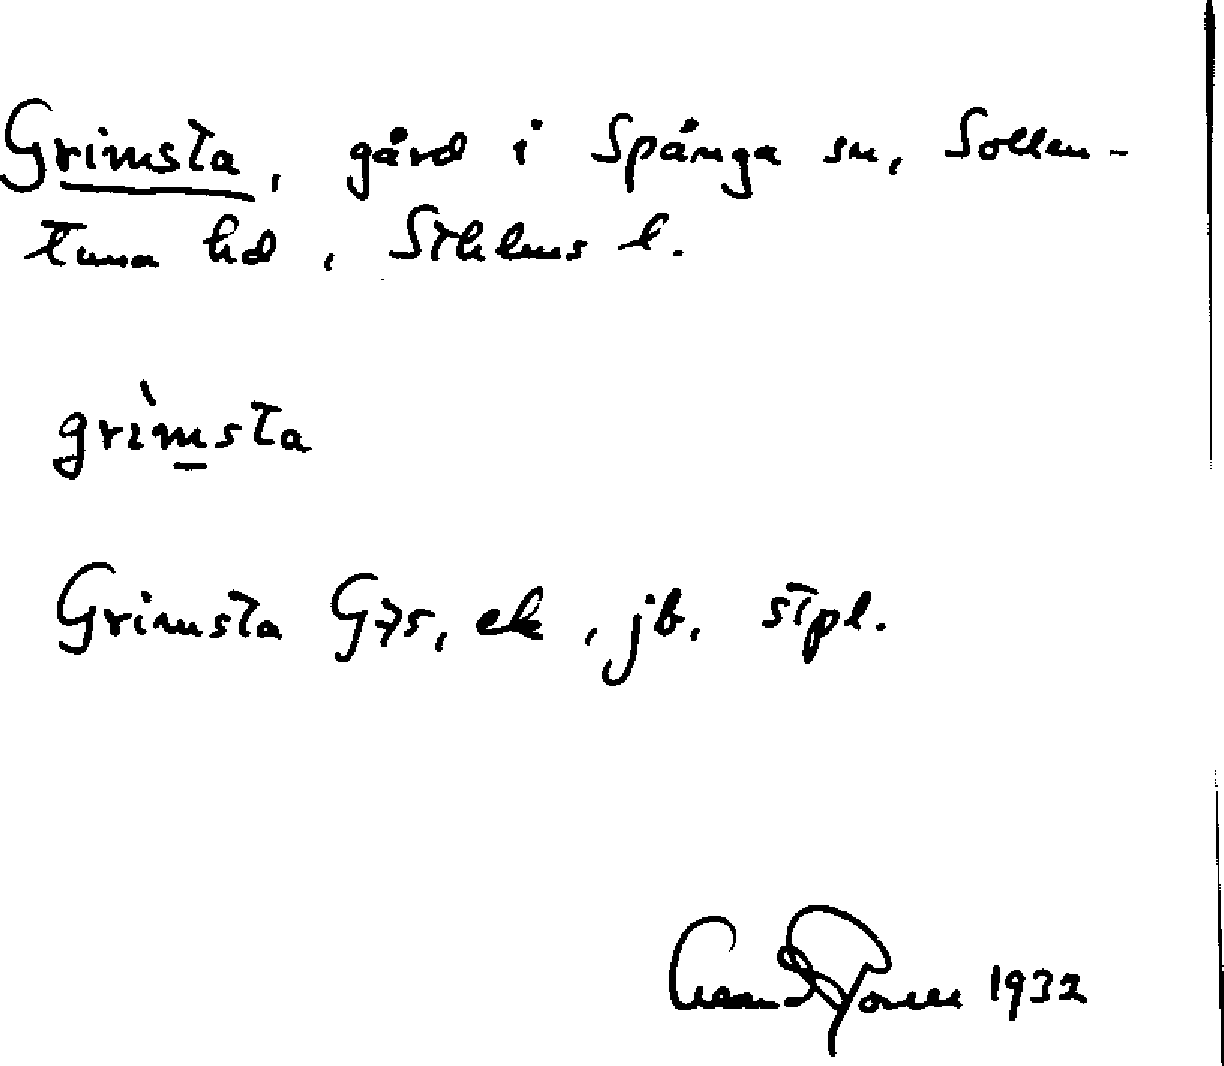 Grimsta, gård i Spånga sn, Sollen-
tuna hd, Sthlms l.
grìmsta
Grimsta G75, ek, jb, stpl.
1932